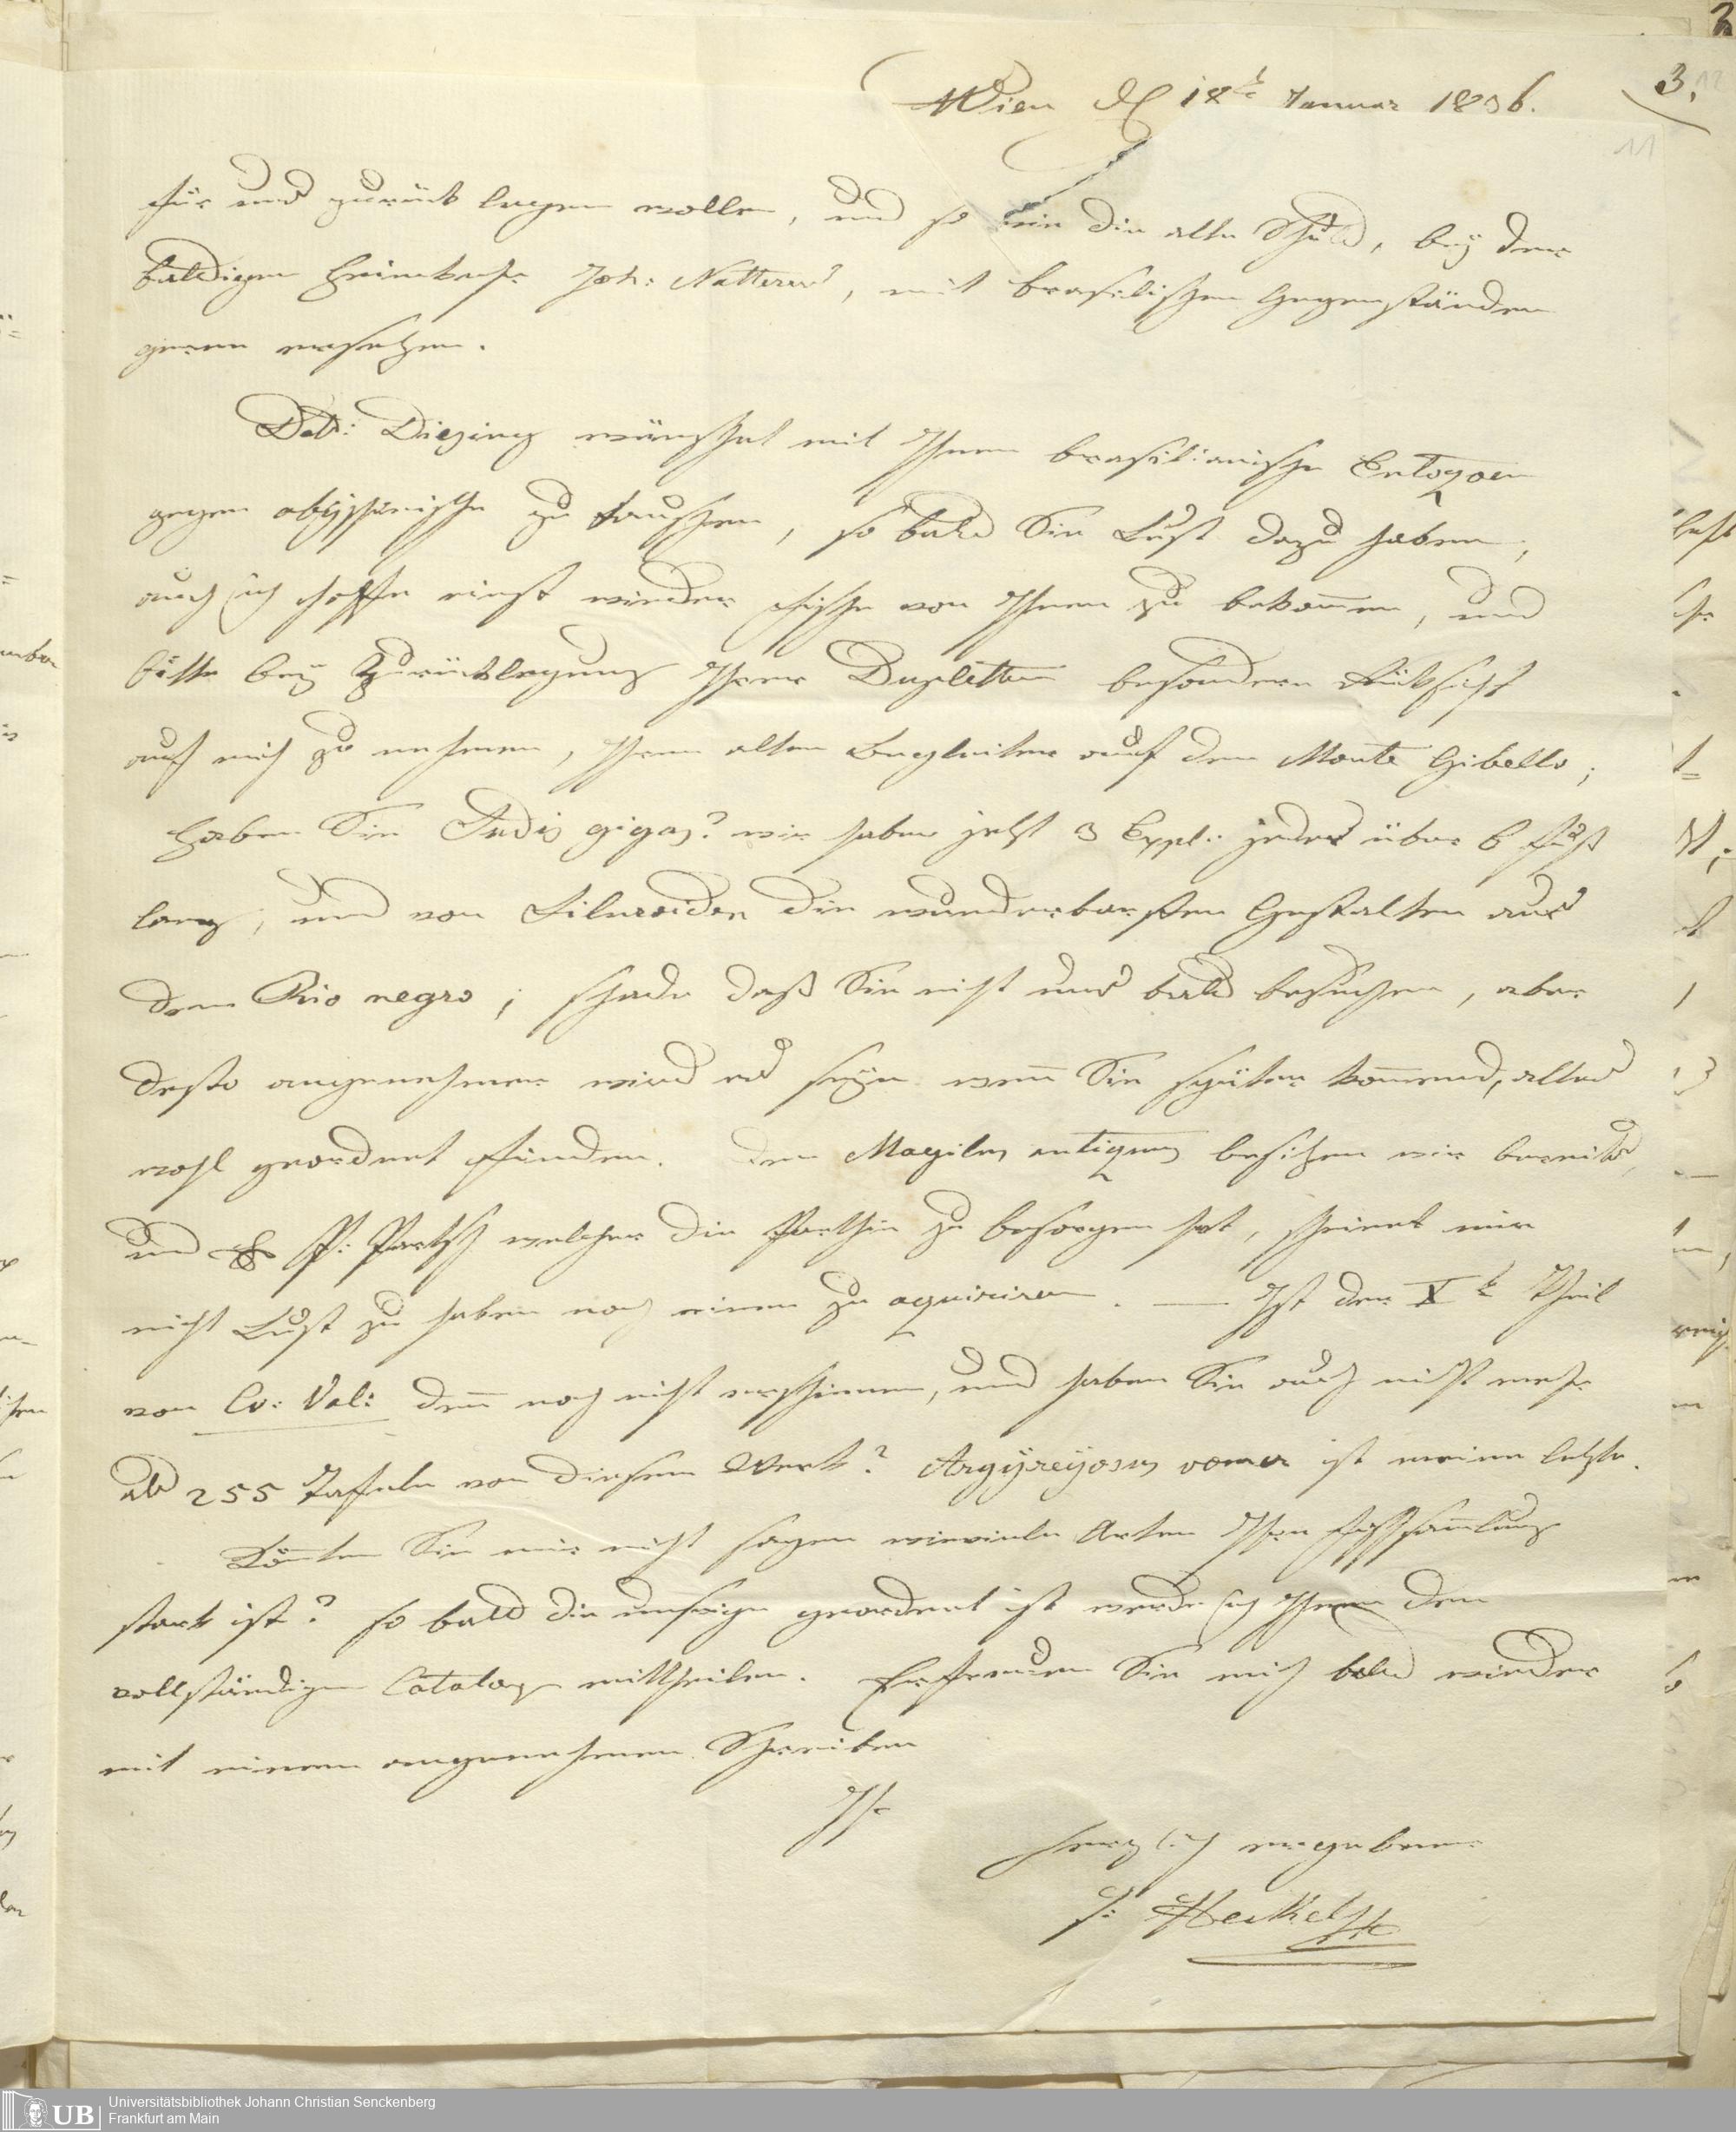 3.
Wien d 18t Januar 1836.
11
für uns zurück legen wollen, und so wie die alte Schuld, bey der
baldigen Heimkehr Joh: Natterers, mit brasilischen Gegenständen
gerne ersetzen.
Dor: Diesing wünschet mit Ihnen brasilianische Entozoen
gegen abyssinische zu tauschen, so bald Sie Lust dazu haben;
auch ich hoffe einst wieder Fische von Ihnen zu bekom̅en, und
bitte bey Zurücklegung Ihrer Dupletten besondere Rücksicht
auf mich zu nehmen, Ihren alten Begleiter auf den Monte Gibello;
Haben Sie Sudis gigas? wir haben jetzt 3 Expl: jedes über 6 Fuß
lang, und von Siluroiden die wunderbarsten Gestalten aus
dem Rio negro; schade daß Sie nicht uns bald besuchen, aber
desto angenehmer wird es seyn wen̅ Sie später kom̅end, alles
wohl geordnet finden. Den Magilus antiquus besitzen wir bereits,
und P: Partsch welcher die Parthie zu besorgen hat, scheint mir
nicht Lust zu haben noch einen zu aquiriren. — Ist der Xt Theil
von Cv: Val: den̅ noch nicht erschienen, und haben Sie auch nicht mehr
als 255 Tafeln von diesem Werk? Argÿreÿosus vomer ist meine letzte.
Kön̅ten Sie mir nicht sagen wieviele Arten Ihre Fischsam̅lung
stark ist? so bald die unsrige geordnet ist werde ich Ihnen den
vollständigen Catalog mittheilen. Erfreuen Sie mich bald wieder
mit einem angenehmen Schreiben
Ihr
herzlich ergebener
J: Heckel
UB
Universitätsbibliothek Johann Christian Senckenberg
Frankfurt am Main